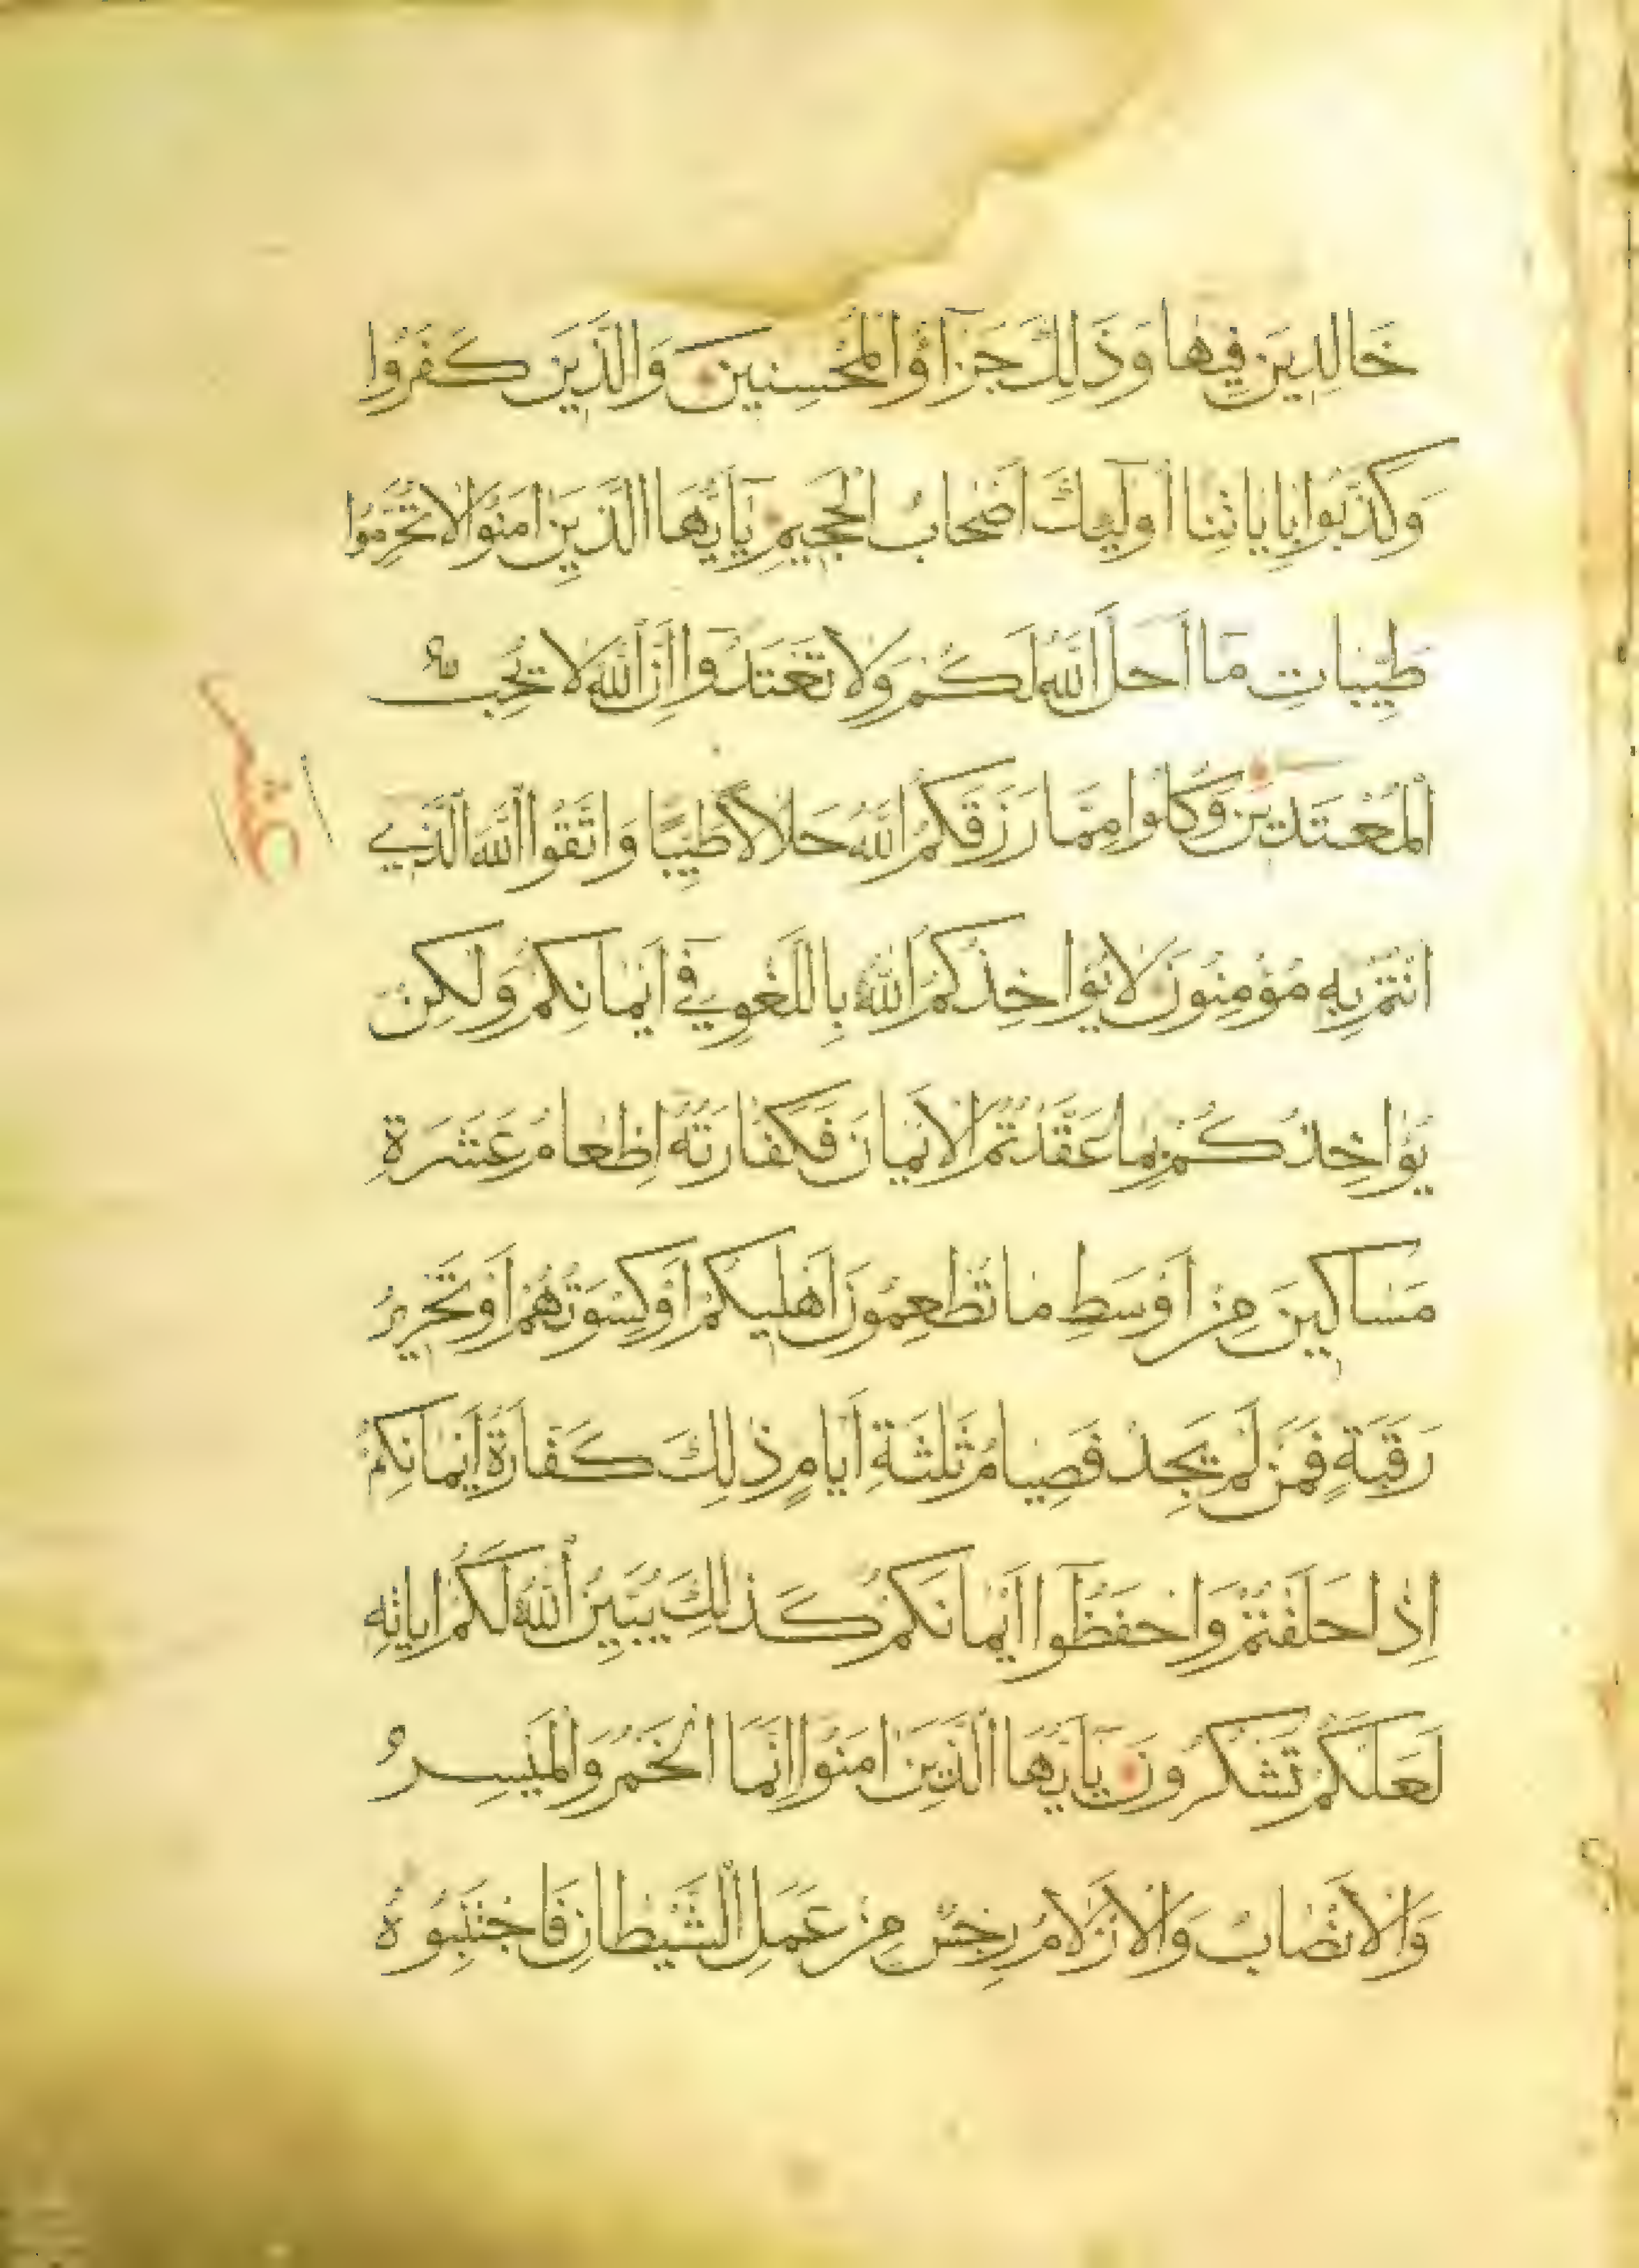 خَالِدِينَ فِيهَا وَذَلِكَ جَزَآؤُا الْمُحْسِنِينَ وَالَّذِينَ كَفَرُوا
وَكَذَّبُوا بِاٰيَاتِنَا أُولَٓئِكَ اَصْحَابُ الْجَحِيمِ يَٓا اَيُّهَا الَّذِينَ اٰمَنُوا لَا تُحَرِّمُوا
طَيِّبَاتِ مَٓا اَحَلَّ اللّٰهُ لَكُمْ وَلَا تَعْتَدُوا اِنَّ اللّٰهَ لَا يُحِبُّ
الْمُعْتَدِينَ وَكُلُوا مِمَّا رَزَقَكُمُ اللّٰهُ حَلَالًا طَيِّبًا وَاتَّقُوا اللّٰهَ الَّذِي
اَنْتُمْ بِهِ مُؤْمِنُونَ لَا يُؤَاخِذُكُمُ اللّٰهُ بِاللَّغْوِ فِي اَيْمَانِكُمْ وَلَكِنْ
يُؤَاخِذُكُمْ بِمَا عَقَّدْتُمُ الْاَيْمَانَ فَكَفَّارَتُهُ اِطْعَامُ عَشَرَةِ
مَسَاكِينَ مِنْ اَوْسَطِ مَا تُطْعِمُونَ اَهْلِيكُمْ اَوْ كِسْوَتُهُمْ اَوْ تَحْرِيرُ
رَقَبَةٍ فَمَنْ لَمْ يَجِدْ فَصِيَامُ ثَلٰثَةِ اَيَّامٍ ذٰلِكَ كَفَّارَةُ اَيْمَانِكُمْ
اِذَا حَلَفْتُمْ وَاحْفَظُوا اَيْمَانَكُمْ كَذٰلِكَ يُبَيِّنُ اللّٰهُ لَكُمْ اٰيَاتِهِ
لَعَلَّكُمْ تَشْكُرُونَ يَٓا اَيُّهَا الَّذِينَ اٰمَنُوا اِنَّمَا الْخَمْرُ وَالْمَيْسِرُ
وَالْاَنْصَابُ وَالْاَزْلَامُ رِجْسٌ مِنْ عَمَلِ الشَّيْطَانِ فَاجْتَنِبُوهُ